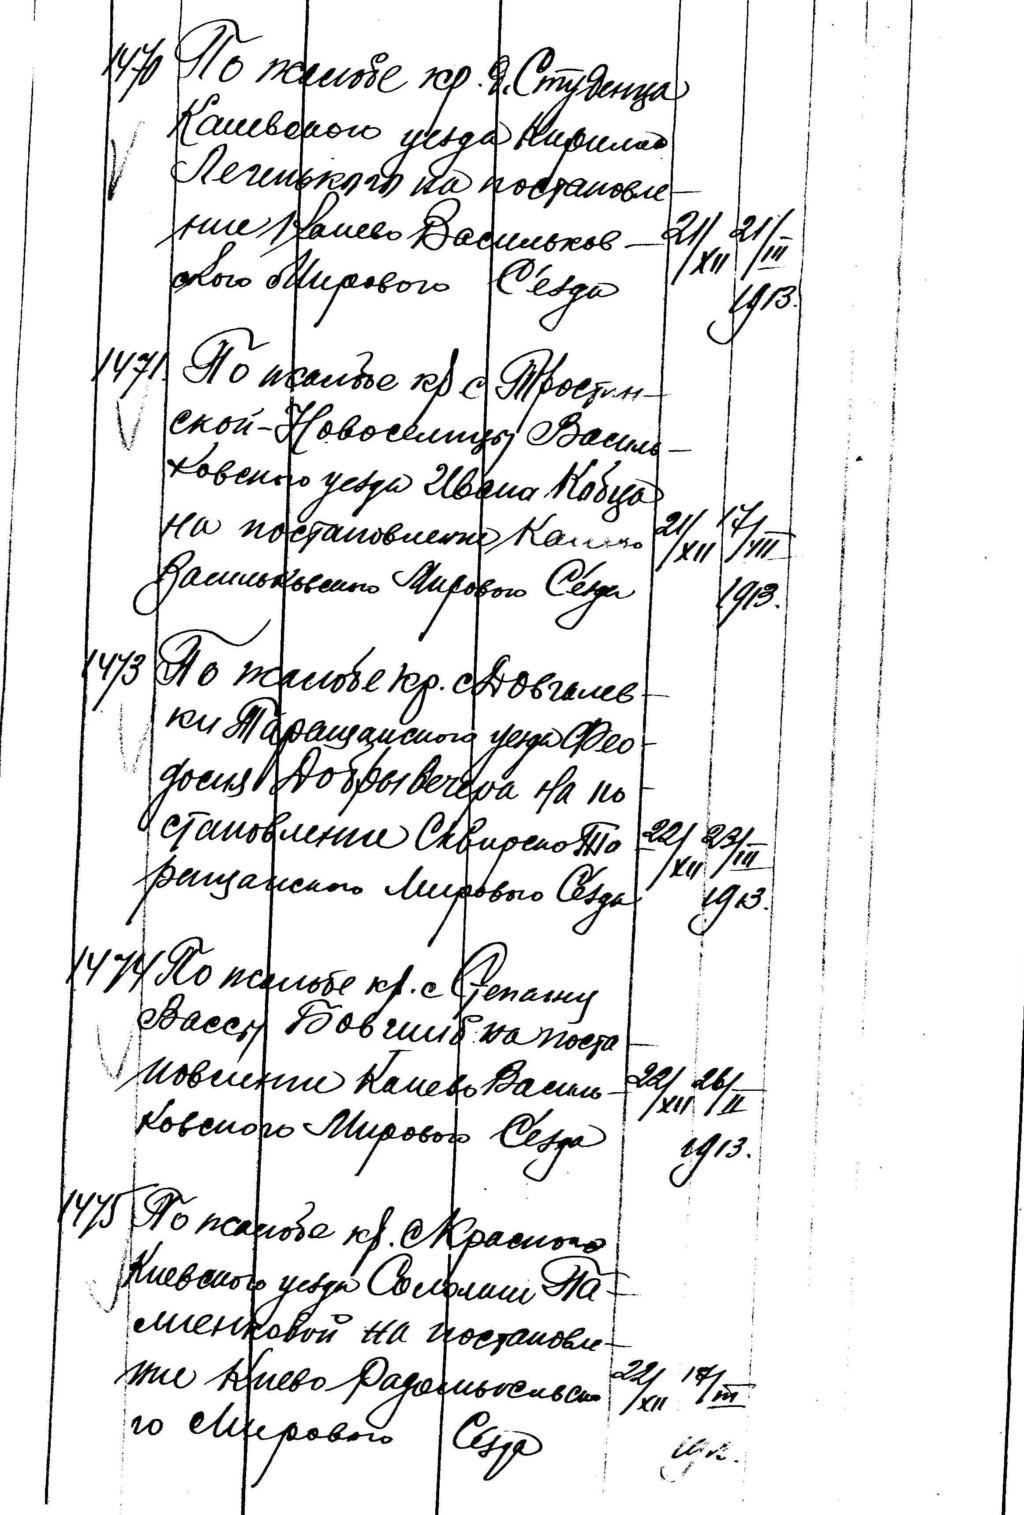 1470 По жалобе кр. д. Студенца
Каневского уезда Кирилла
Легенького на постановле-
ние Канево Васильков-
ского Мирового С'езда 21/XII 21/III
1913.
1471. По жалобе кр с Тростин-
ской-Новоселицы Василь-
ковского уезда Ивана Кобца
на постановление Канево 21/XII 17/VIII
Васильковского Мирового С'езда 1913.
1473 По жалобе кр. с Довгалев-
ки Таращанского уезда Фео-
досия Добрывечера на по-
становление Сквирско Та- 22/XII 23/III
ращанского Мирового С'езда 1913.
1474 По жалобе кр. с Степанец
Вассы на поста-
новление Канево Василь- 22/XII 26/II
ковского Мирового С'езда 1913.
1475 По жалобе кр. с Красного
Киевского уезда Соломии Па-
лиенковой на постановле-
ние Киево Радомысльско- 22/XII 17/III
го Мирового С'езда